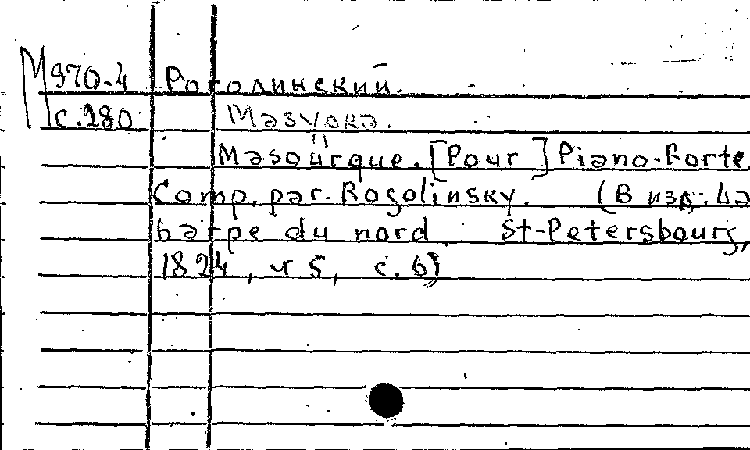 М970-4 Роголинский.
с.180 Мазурка.
Masourque. [Pour] Piano-Forte
Comp. par. Rogolinsky. (В изд.: La
harpe du nord. St-Petersbourg,
1824, v 5, с. 6)